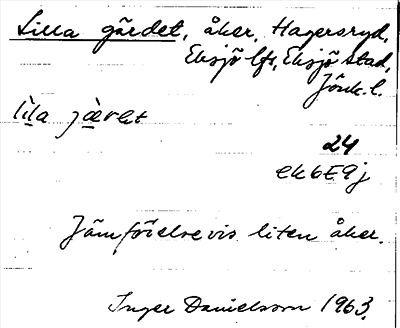 Lilla gärdet, åker, Hagersryd,
Eksjö lfs, Eksjö stad,
Jönk. l.
lìla jæ̀ret
24
ek6E9j
Jämförelsevis liten åker.
Inger Danielsson 1963.